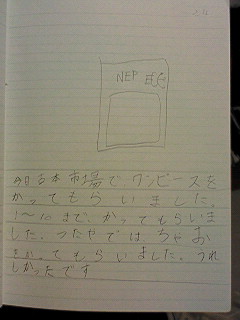 NEP
今日古本市場でワンピースを
かってもらいました。
1〜10まで、かってもらいま
した。つたやでは、ちゃお
をかってもらいました。うれ
しかったです